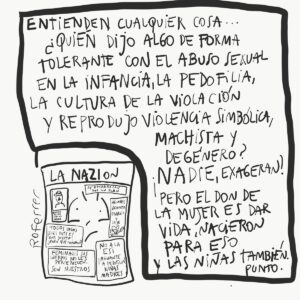 ENTIENDEN CUALQUIER COSA...
¿QUIÉN DIJO ALGO DE FORMA
TOLERANTE CON EL ABUSO SEXUAL
EN LA INFANCIA, LA PEDOFILIA,
LA CULTURA DE LA VIOLACIÓN
Y REPRODUJO VIOLENCIA SIMBÓLICA,
MACHISTA Y
DE GÉNERO?
¡NADIE, EXAGERAN!
¡PERO EL DON DE
LA MUJER ES DAR
VIDA, NACIERON
PARA ESO
Y LAS NIÑAS TAMBIÉN.
PUNTO.
LA NAZION
NO A LA
NIÑAS
MADRES!